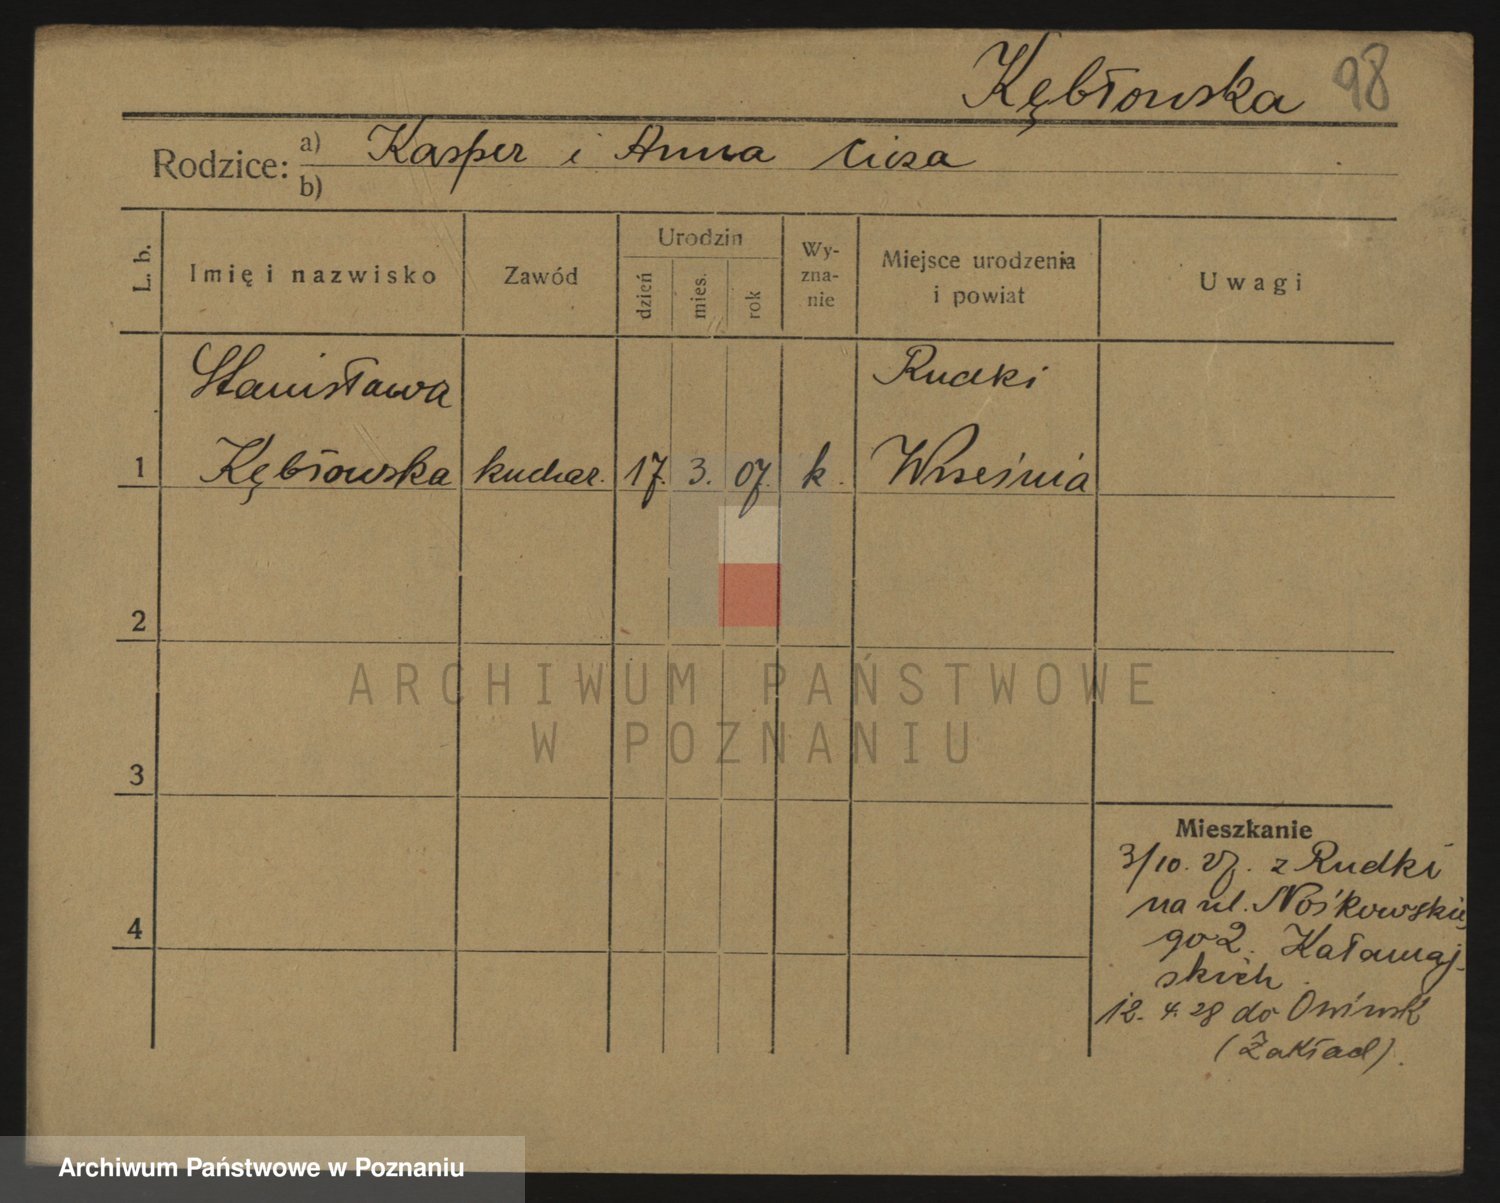 Kębłowska 98
Rodzice: a) Kasper i Anna Cicsa
b)
L. b.
Imię i nazwisko
Zawód
Urodzin
dzień
mies.
rok
Wy-
zna-
nie
Miejsce urodzenia
i powiat
Uwagi
Stanisława Rudki
1 Kębłowska kuchar. 17. 3. 07. k. Września
2
3
4
Mieszkanie
3/10. 27. z Rudki
na ul. Nośkowskie
go 2. Kałamaj-
skich.
12. 4. 28 do Owińsk
(Zakład).
ARCHIWUM PAŃSTWOWE
W POZNANIU
Archiwum Państwowe w Poznaniu